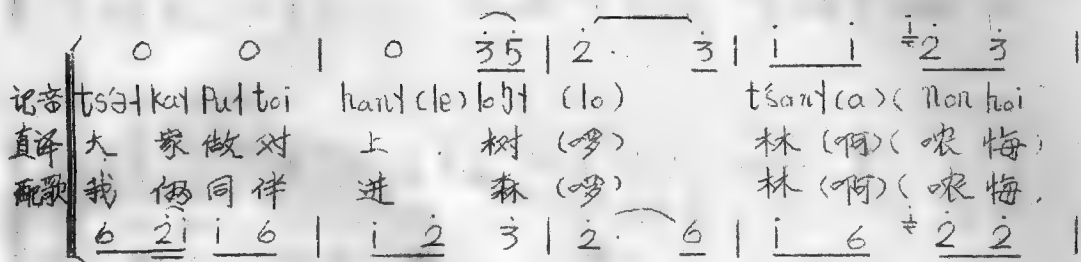 0 0 | 0 3̇5̇ | 2̇· 3̇ | i̇ i̇ i̇2̇ 3̇ |
记音 kay toi (le) (lo) (a) ( non hoi
直译 大 家 做 对 上 树 (啰) 林 (啊) ( 哝 悔)
配歌 我 俩 同 伴 进 森 (啰) 林 (啊) ( 哝 悔.
6 2̇i̇ i̇ 6 | i̇ 2̇ 3̇ | 2̇· 6 | i̇ 6 2̇ 2̇ |